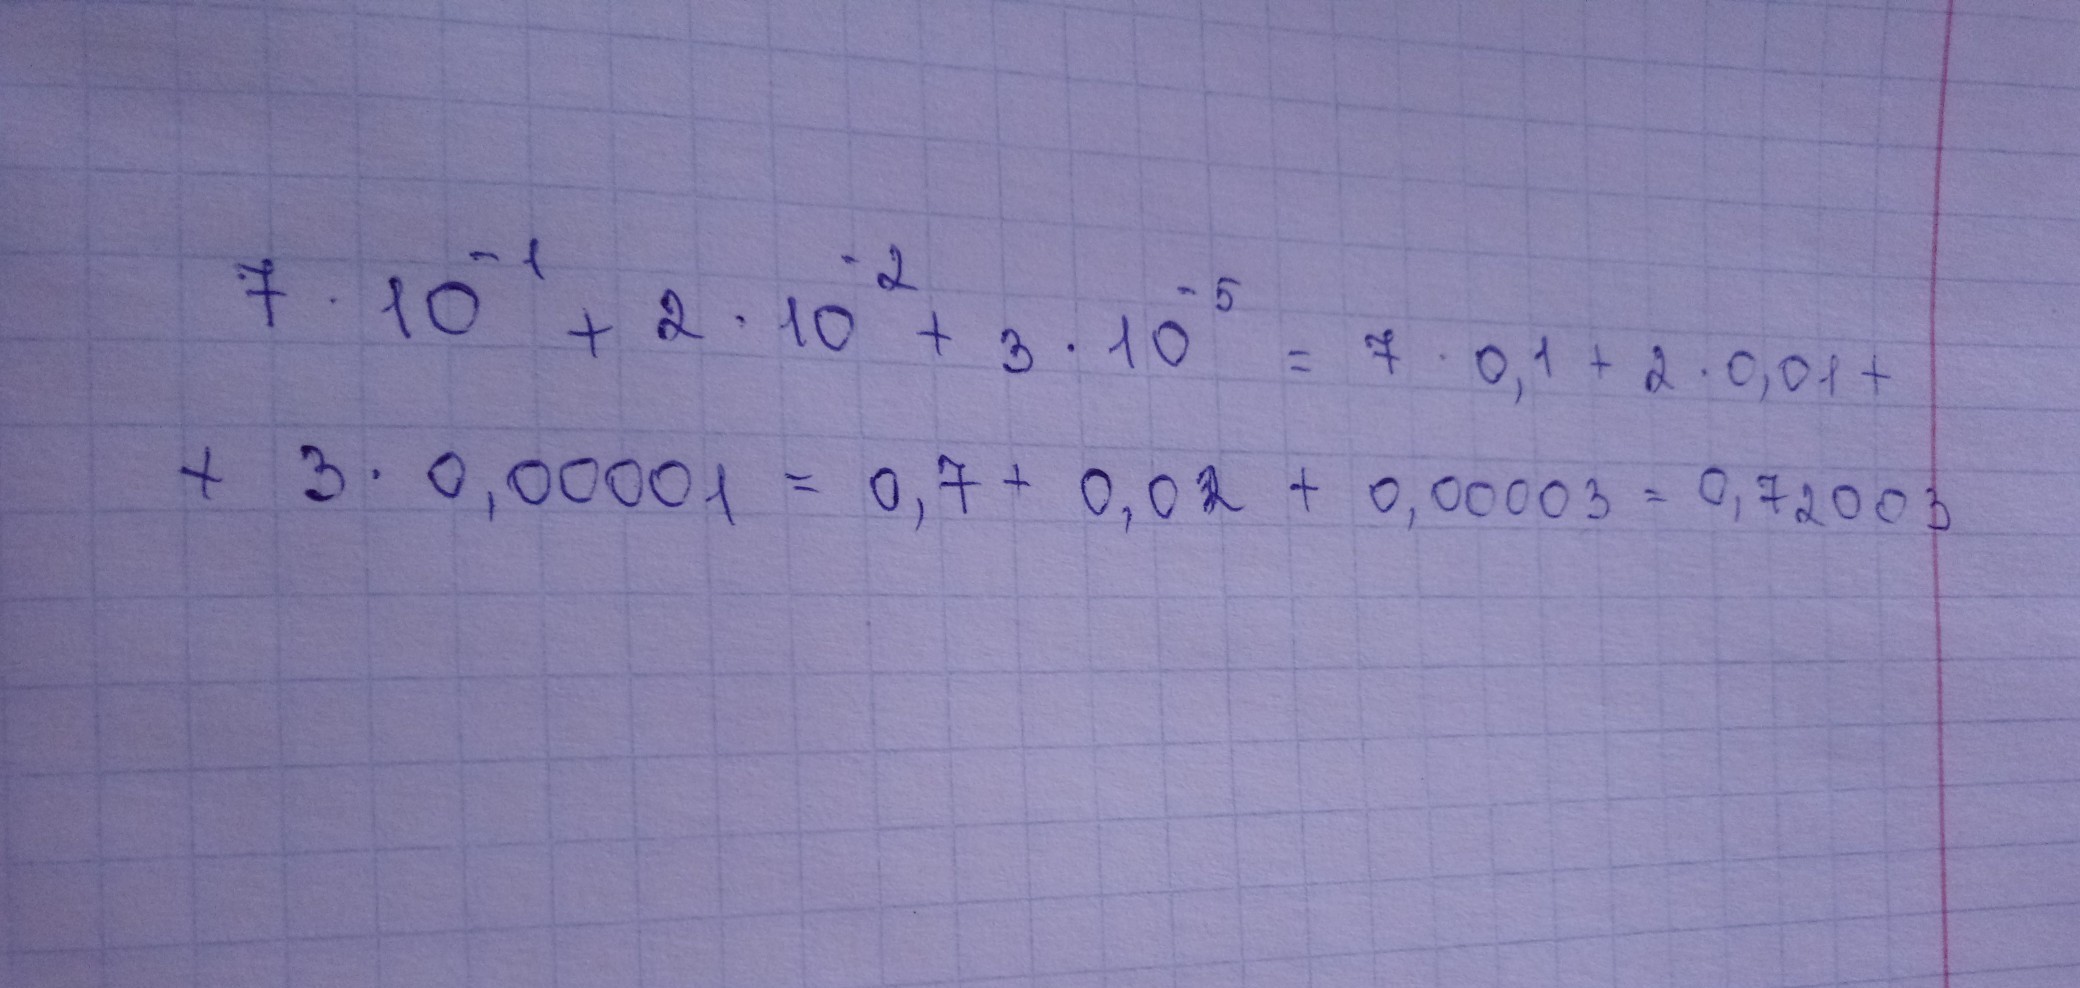 7 · 10⁻¹ + 2 · 10⁻² + 3 · 10⁻⁵ = 7 · 0,1 + 2 · 0,01 +
+ 3 · 0,00001 = 0,7 + 0,02 + 0,00003 = 0,72003